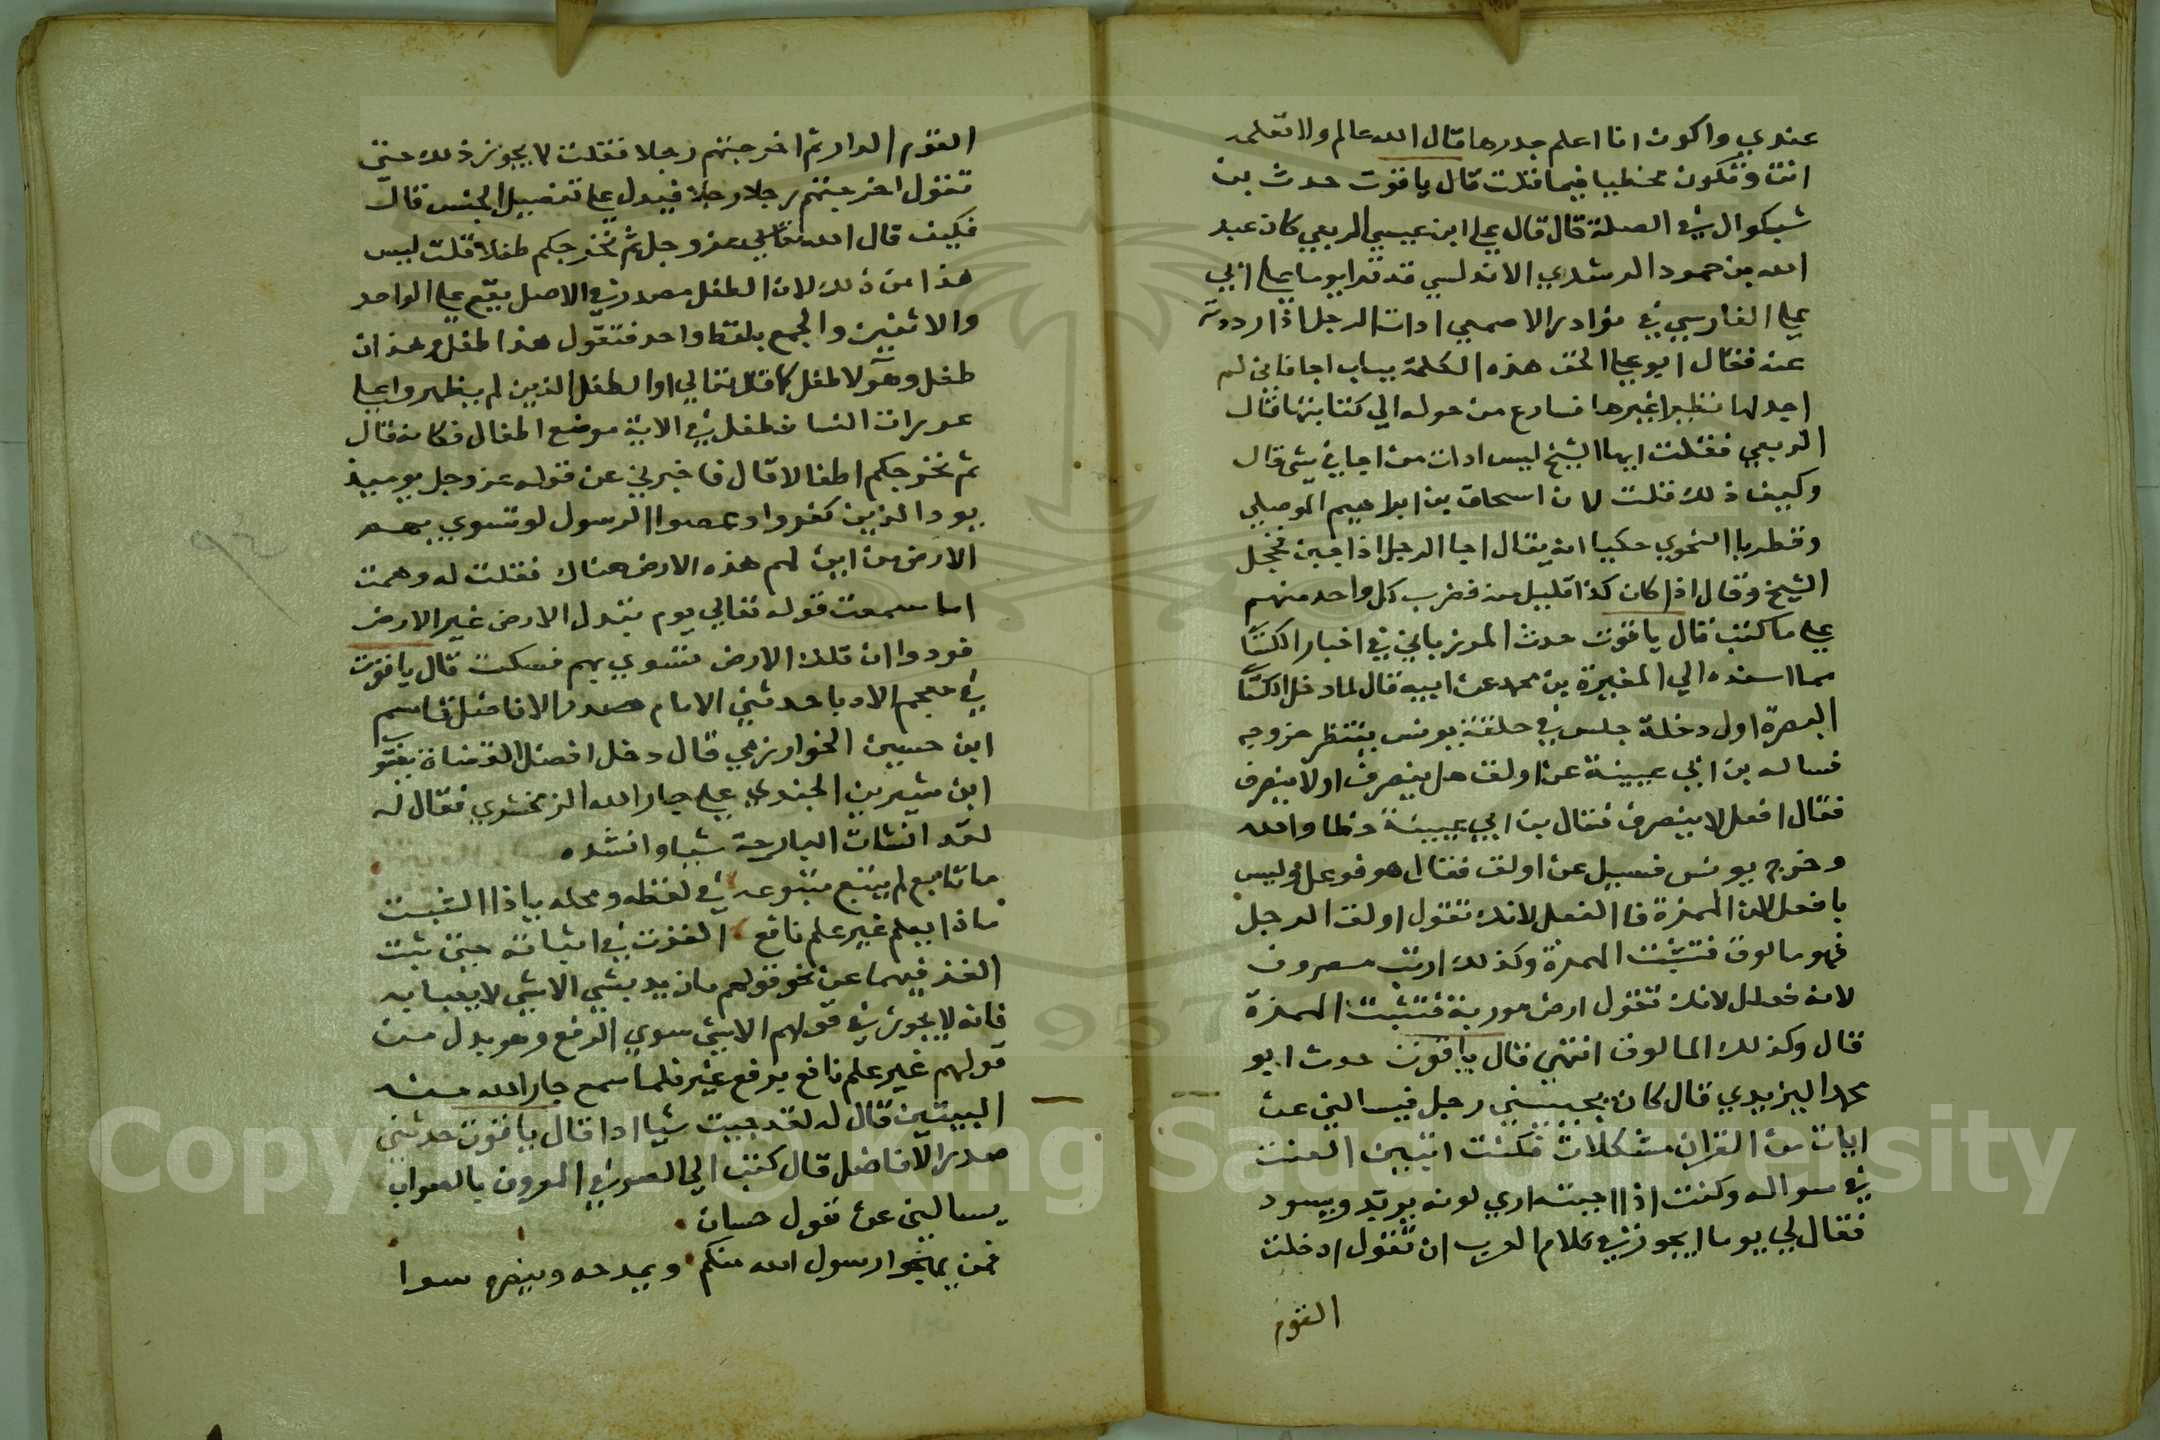 عندي واكون انا اعلم جدرها قال الله عالم ولا تعلمه
انت وتكون مخطيا فيما قلت قال ياقوت حدث بن
شبكوال في الصلة قال قال علي ابن عيسي الربعي كان عبد
الله بن حمود الرشدي الاندلسي قد قرا يوما علي ابي
علي الفارسي في نوادر الاصمعي ادات الرجل اذا رددته
عنه فقال ابو علي الحق هذه الكلمة بباب اجا فاني لم
اجد لها نظيرا غيرها فسارع من حوله الي كتابتها قال
الربعي فقلت ايها الشيخ ليس ادات من اجا في شي قال
وكيف ذلك قلت لان اسحاق بن ابراهيم الموصلي
وقطربا النحوي حكيا انه يقال اجا الرجل اذا جبن فخجل
الشيخ وقال اذا كان كذا قليل منه فضرب كل واحد منهم
علي ما كتب قال ياقوت حدث المرزباني في اخبار الكسا
مما اسنده الي المغيرة بن محمد عن ابيه قال لما دخل الكسا
البصرة اول دخلة جلس في حلقة يونس ينتظر خروجه
فساله بن ابي عيينة عن اولق هل ينصرف اولا ينصرف
فقال افعل لا ينصرف فقال بن ابي عيينة خطا والله
وخرج يونس فسيل عن اولق فقال هو فوعل وليس
بافعل لان الهمزة فا الفعل لانك تقول اولق الرجل
فهو مالوق فتثبت الهمزة وكذلك ارنب مصروف
لانه فعلل لانك تقول ارض مورنبة فتثبت الهمزة
قال وكذلك المالوق انتهي قال ياقوت حدث ابو
محمد اليزيدي قال كان يجيبني رجل فيسالني عن
ايات من القران مشكلات فكنت اتبين العنت
في سواله وكنت اذا اجبته اري لونه يربد ويسود
فقال لي يوما ايجوز في كلام العرب ان تقول ادخلت
القوم
القوم الدار ثم اخرجتهم رجلا فقلت لا يجوز ذلك حتي
تقول اخرجتهم رجلا رجلا فيدل علي تفصيل الجنس قال
فكيف قال الله تعالي عز وجل ثم نخرجكم طفلا قلت ليس
هذا من ذلك لان الطفل مصدر في الاصل يقع علي الواحد
والاثنين والجمع بلفظ واحد فتقول هذا طفل وهذان
طفل وهولا طفل كما قال تعالي او الطفل الذين لم يظهروا علي
عورات النسا فطفل في الاية موضع اطفال فكانه قال
ثم نخرجكم اطفالا قال فاخبرني عن قوله عز وجل يوميذ
يود الذين كفروا وعصوا الرسول لو تسوي بهم
الارض من اين لهم هذه الارض هناك فقلت له وهمت
اما سمعت قوله تعالي يوم تبدل الارض غير الارض
فودوا ان تلك الارض تسوي بهم فسكت قال ياقوت
في معجم الادبا حدثني الامام صدر الافاضل قاسم
ابن حسين الخوارزمي قال دخل افضل القضاة يعقو
ابن شيرين الجندي علي جار الله الزمخشري فقال له
لقد انشات البارحة شيا وانشده
ما تابع لم يتبع متبوعه في لفظه ومحله ياذا الثبت
ماذا بعلم غير علم نافع الغزت في اثباته حتي ثبت
الغز فيهما عن نحو قولهم ما زيد بشي الا شي لا يعبا به
فانه لا يجوز في قولهم الا شي سوي الرفع وهو بدل من
قولهم غير علم نافع يرفع غير فلما سمع جار الله منه
البيتين قال له لقد جيت شيا ادا قال ياقوت حدثني
صدر الافاضل قال كتب الي الصوفي المعروف بالصواب
يسالني عن قول حسان
فمن يهجوا رسول الله منكم ويمدحه وينصره سوا